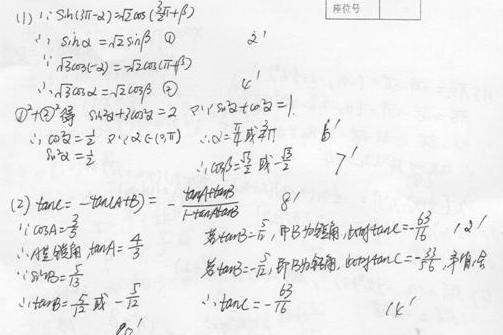 座位号
(1) ∵ Sin(3π-α)=√2cos(3/2π+β)
∴ sinα=√2sinβ ① 2'
∵ √3cos(-α)=-√2cos(π+β)
∴ √3cosα=√2cosβ ② 4'
①²+②²得 sin²α+3cos²α=2 又∵ sin²α+cos²α=1
∴ cos²α=1/2 又∵α∈(0,π) ∴α=π/4或3/4π 6'
sin²α=1/2
∴cosβ=√3/2或-√3/2 7'
(2) tanC=-tan(A+B)=-(tanA+tanB)/(1-tanAtanB) 8'
∵cosA=3/5
∴A是锐角,tanA=4/3
∵sinB=5/13
∴tanB=5/12或-5/12
若tanB=5/12,即B为锐角,此时tanC=-63/16 12'
若tanB=-5/12,即B为钝角,此时tanC=-33/56,矛盾,舍
∴tanC=-63/16 14'